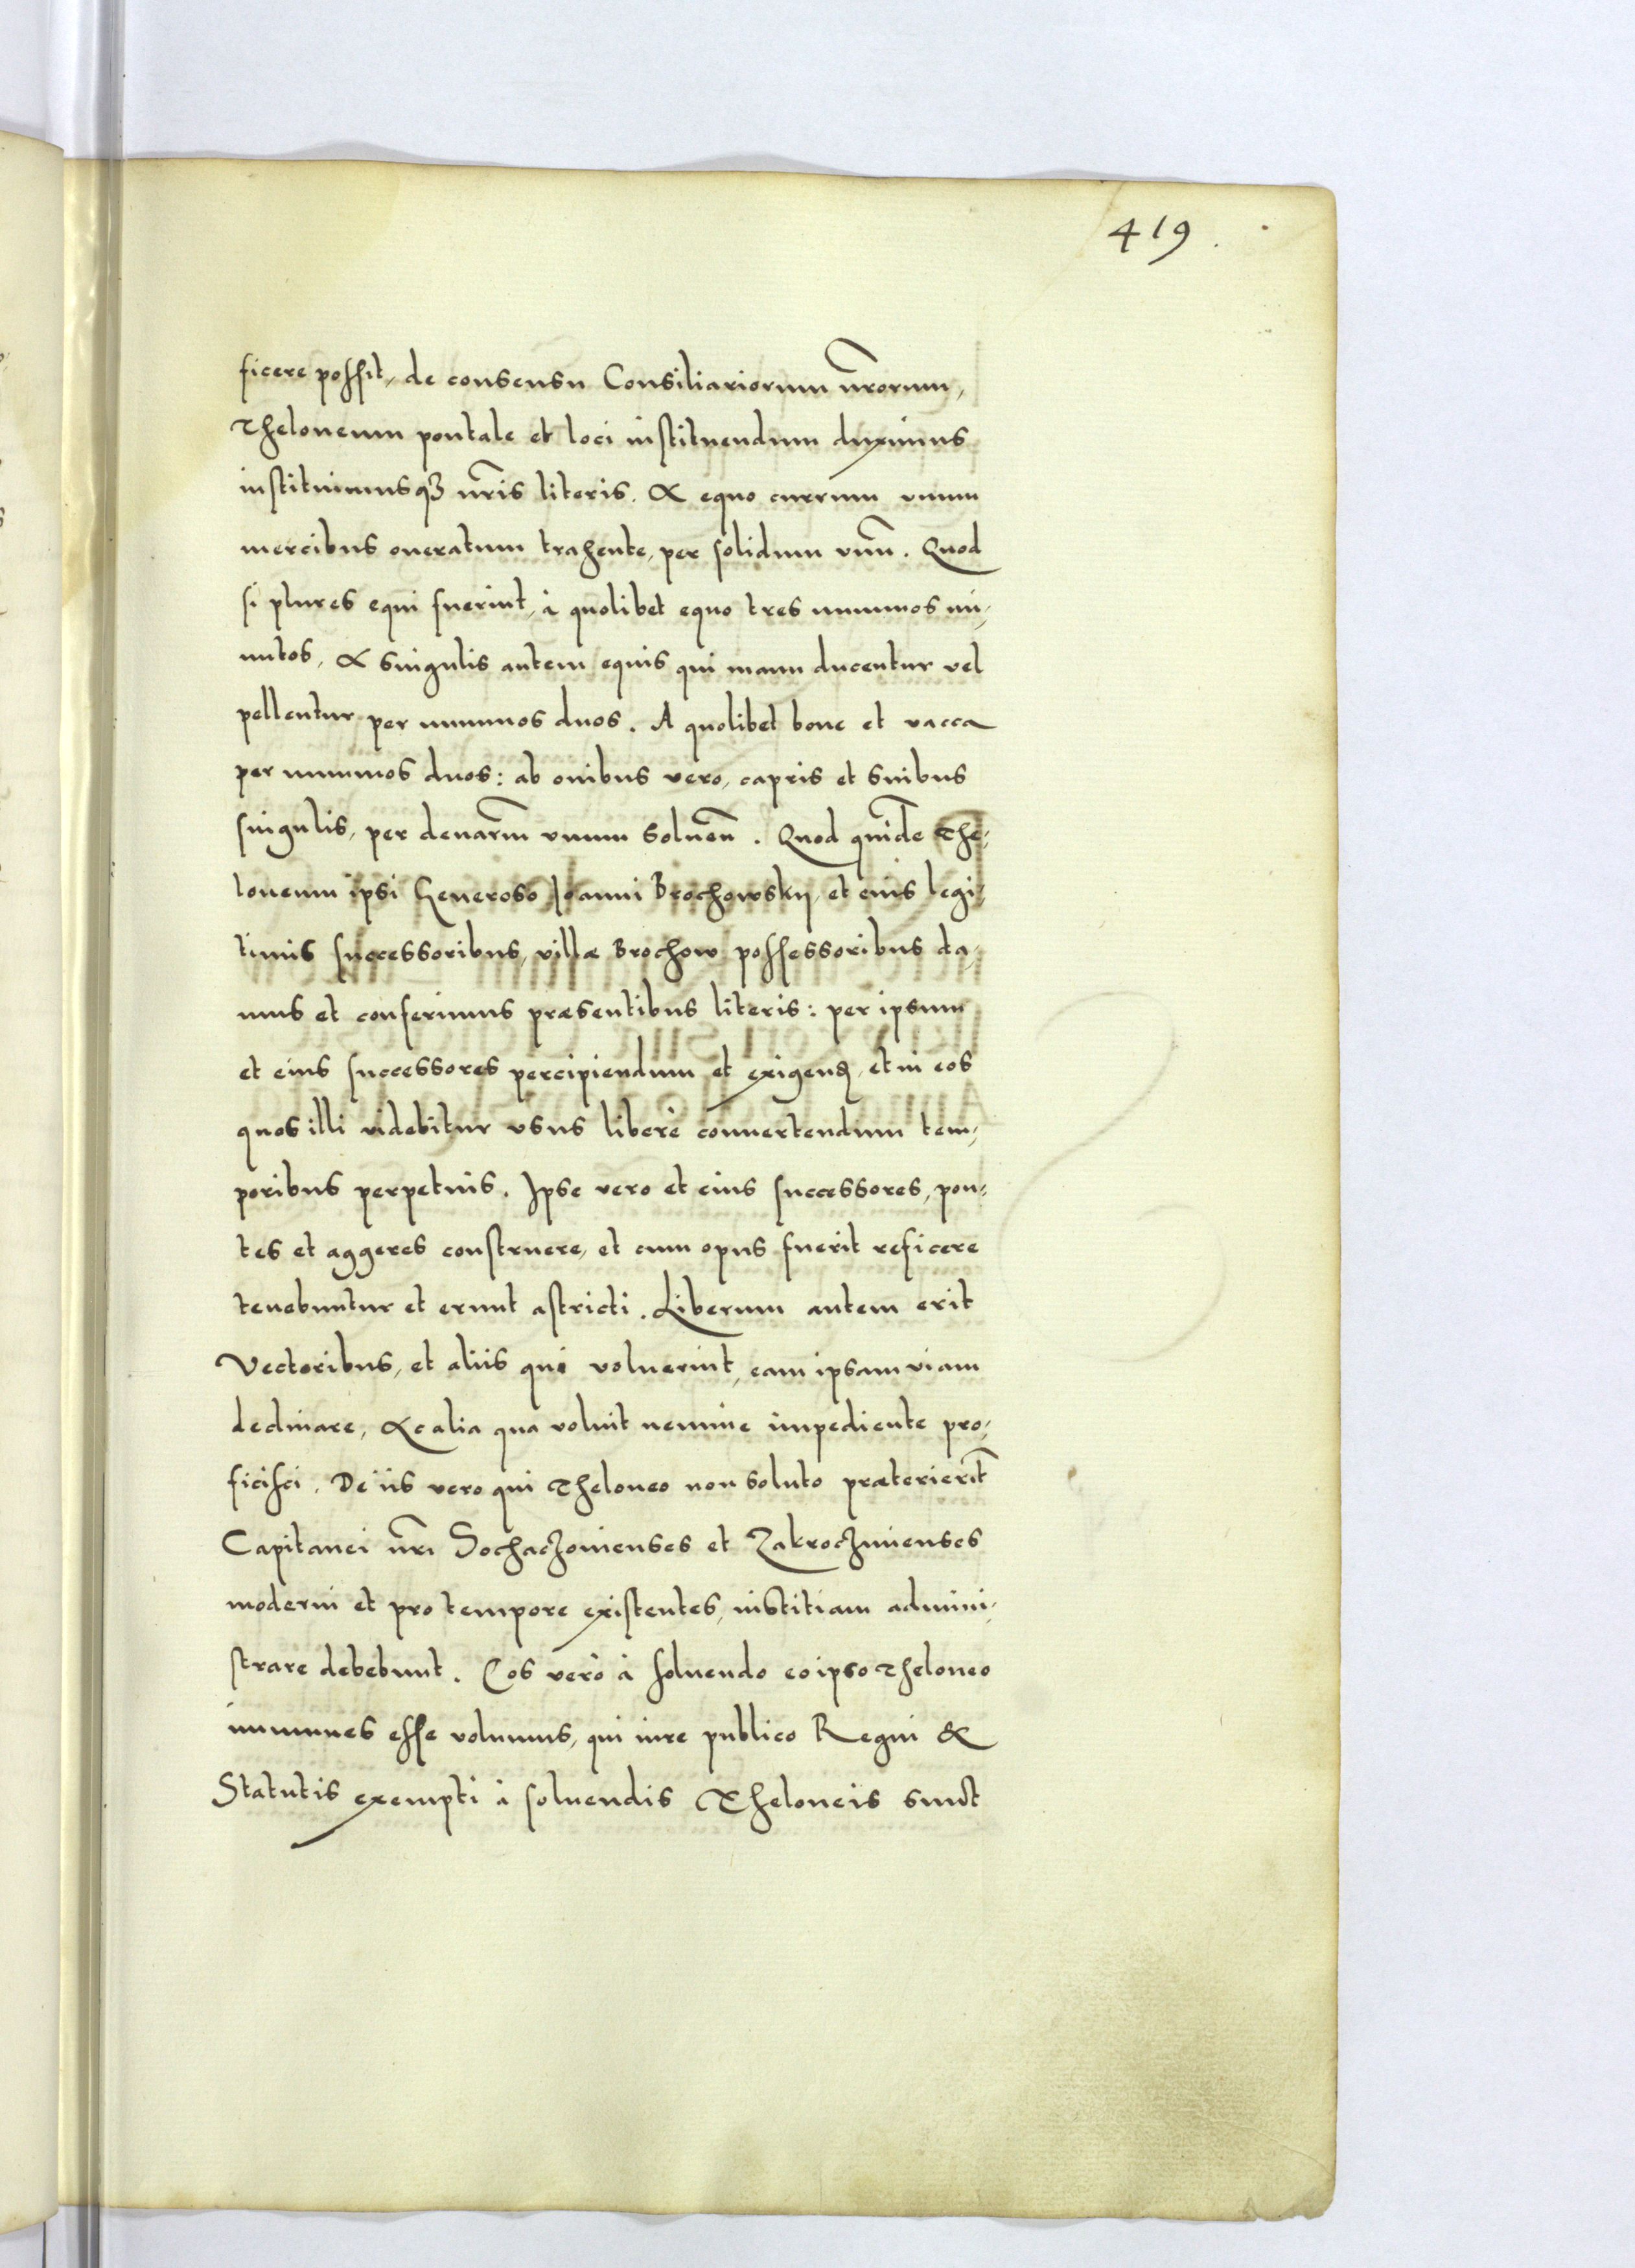 419.
ficere possit, de consensu Consiliariorum nr̃orum,
Theloneum pontale et loci instituendum duximus
instituimusqȝ nr̃is literis. A equo currum unum
mercibus oneratum trahente, per solidum vnũ. Quod
si plures equi fuerint, à quolibet equo tres nummos mi-
nutos, A singulis autem equis qui manu ducentur vel
pellentur per nummos duos. A quolibet boue et vacca
per nummos duos: ab ouibus vero, capris et suibus
singulis, per denariũ vnum soluen̄. Quod quidẽ The-
loneum ipsi Generoso Joanni Brochowskij, et eius legi-
timis successoribus, villæ Brochow possessoribus da-
mus et conferimus præsentibus literis: per ipsum
et eius successores percipiendum et exigenđ, et in eos
quos illi videbitur vsus liberè conuertendum tem-
poribus perpetuis. Ipse vero et eius successores, pon-
tes et aggeres construere, et cum opus fuerit reficere
tenebuntur et erunt astricti. Liberum autem erit
Vectoribus, et aliis qui voluerint, eam ipsam viam
declinare, & alia qua voluit nemine impediente pro-
ficisci. De iis vero qui Theloneo non soluto præterierit̃
Capitanei nr̃i Sochaczouienses et Zakroczimienses
moderni et pro tempore existentes, iustitiam admini-
strare debebunt. Eos verò à soluendo eo ipso Theloneo
immunes esse volumus, qui iure publico Regni &
Statutis exempti à soluendis Theloneis sunt